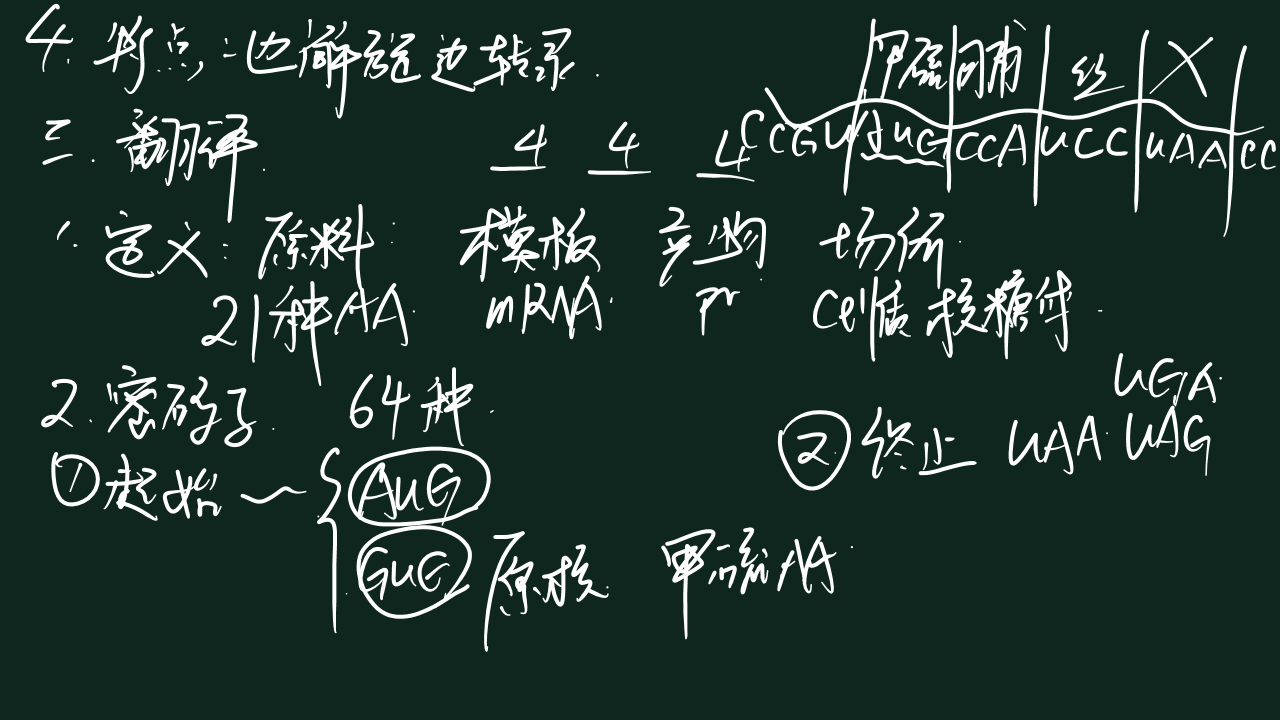 4. 特点:边解旋边转录.
甲硫 脯 丝 X
三. 翻译.
4 4 4
CCGU AUG CCA UCC UAA CC
1. 定义: 原料: 模板 产物 场所.
21种AA. mRNA. pr. Cel质 核糖体.
2. 密码子. 64种.
①起始~ { AUG
GUG 原核. 甲硫AA.
②终止 UAA. UAG
UGA.